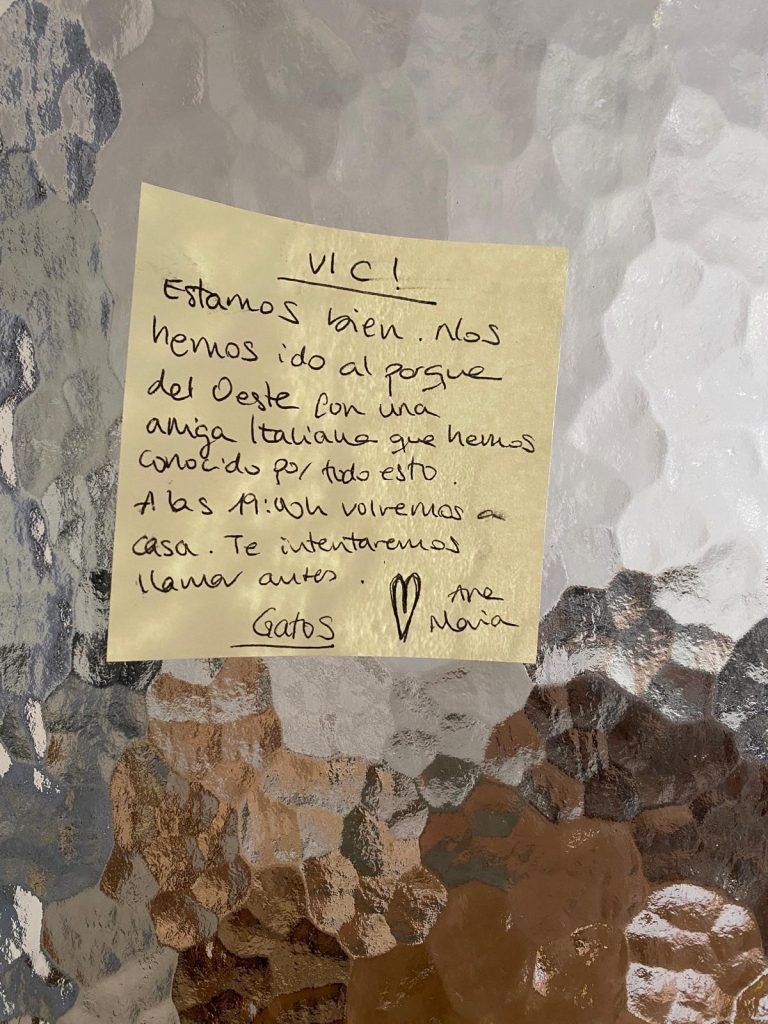 VIC!
Estamos bien. Nos
hemos ido al porque
del Oeste con una
amiga Italiana que hemos
conocido por todo esto.
A las 19:00h volvemos a
casa. Te intentaremos
llamar antes.
Gatos
Ana
Maria